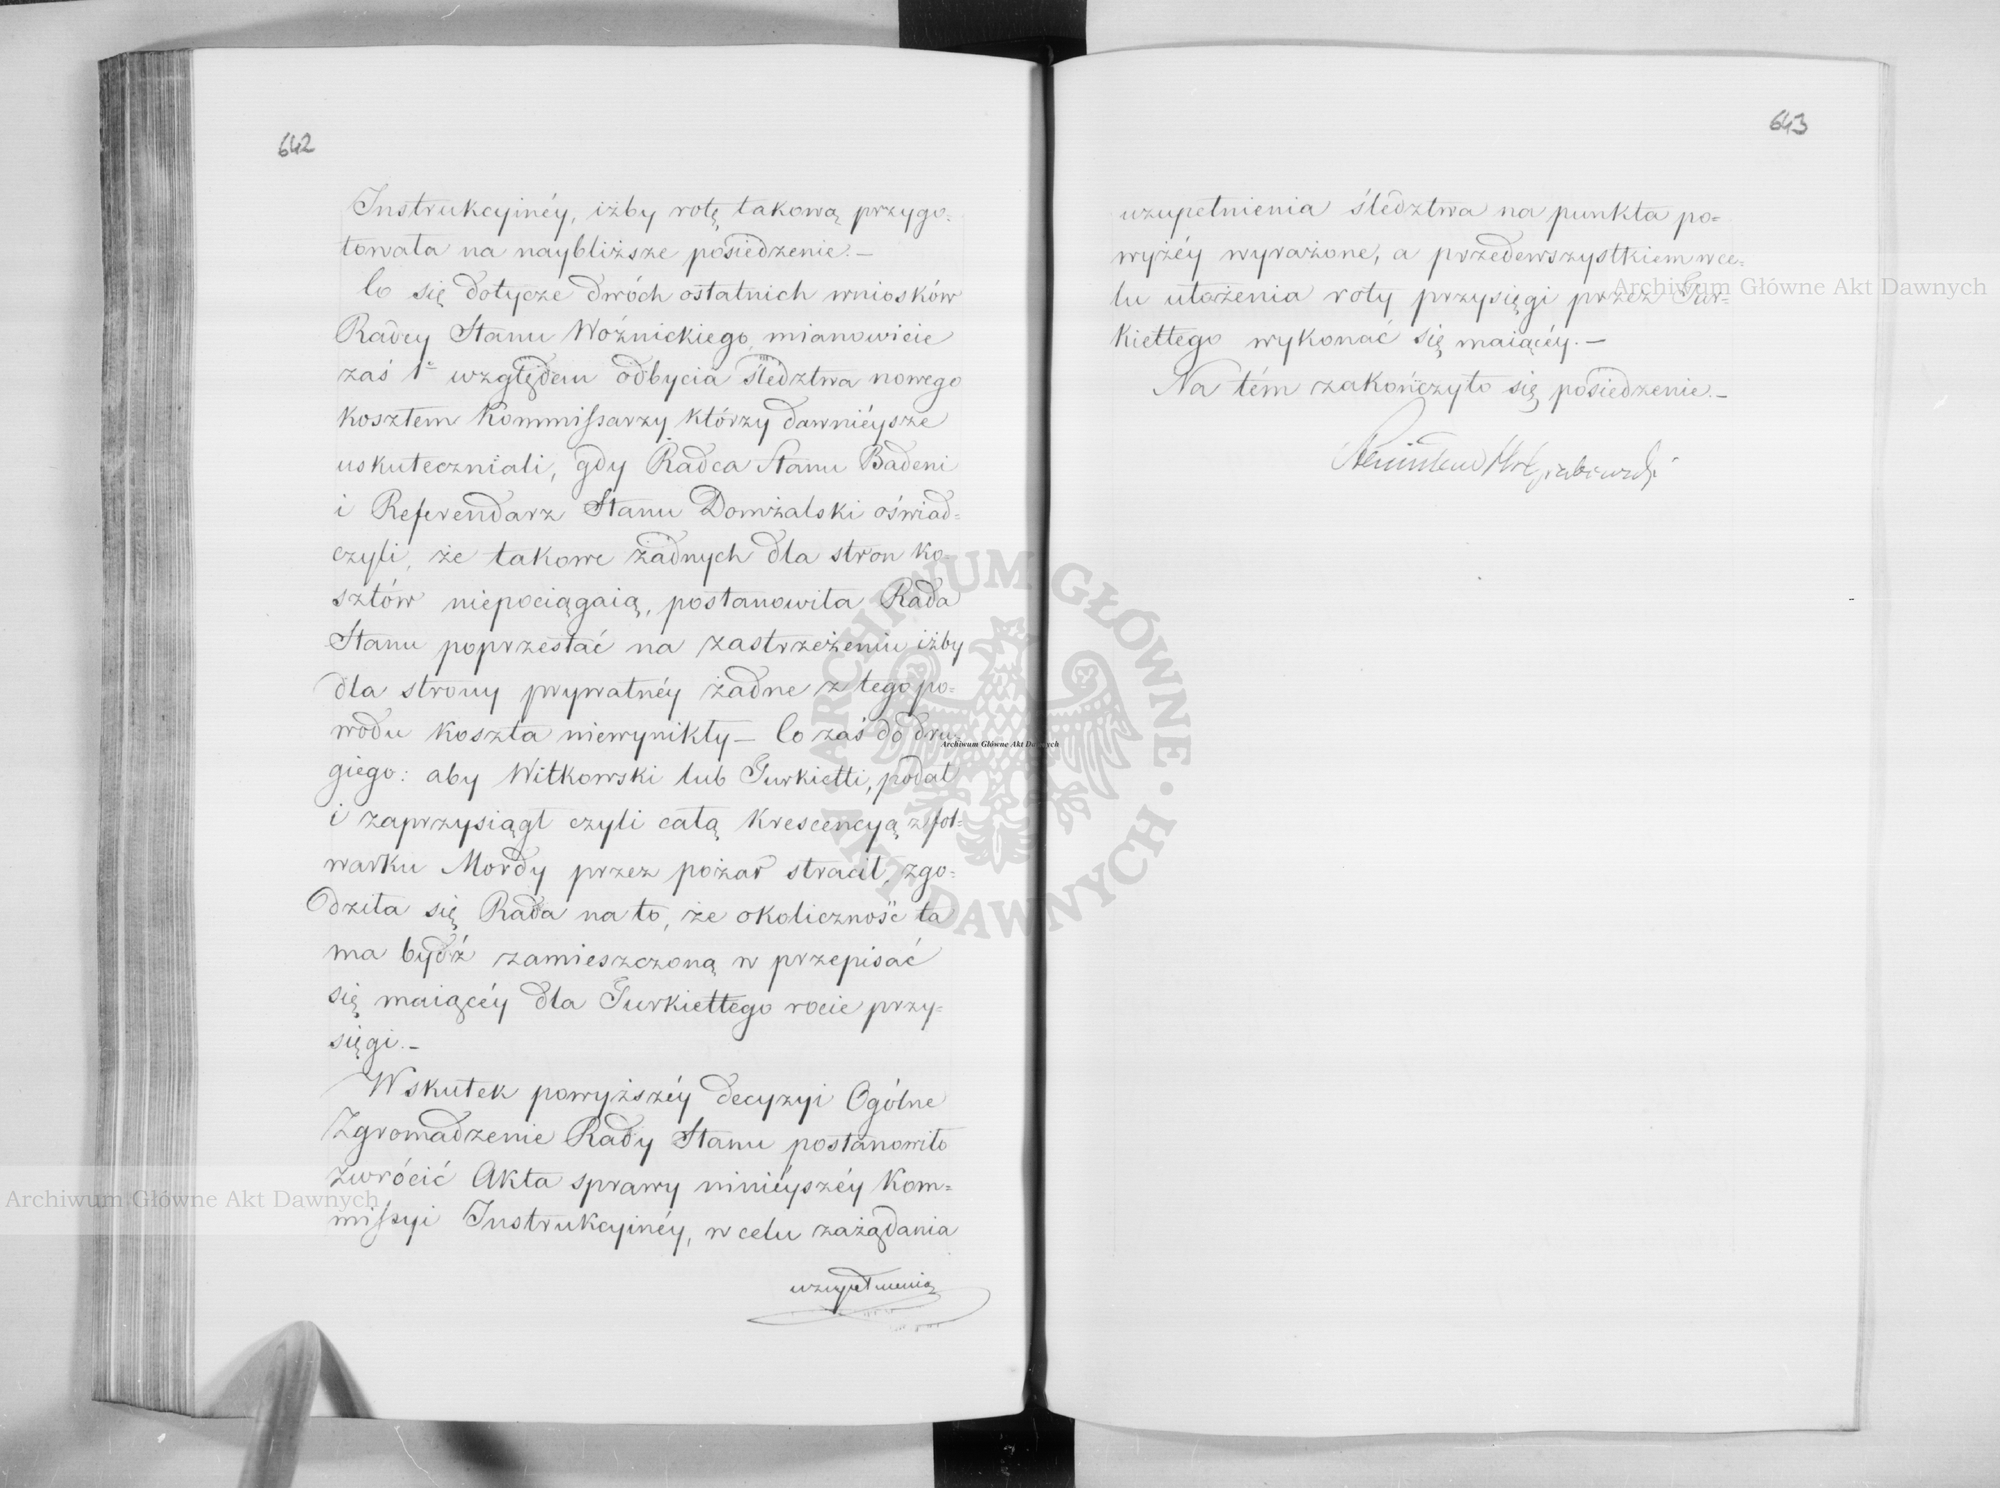 642
Instrukcyinéy, iżby rotę takową przygo=
towała na naybliższe posiedzenie.—
Co się dotycze dwóch ostatnich wniosków
Radcy Stanu Woźnickiego, mianowicie
zaś 1º względem odbycia śledztwa nowego
kosztem Kommissarzy którzy dawniéysze
uskuteczniali, gdy Radca Stanu Badeni
i Referendarz Stanu Domżalski oświad=
czyli, że takowe żadnych dla stron ko=
sztów niepociągaią, postanowiła Rada
Stanu poprzestać na zastrzeżeniu iżby
dla strony prywatnéy żadne z tego po=
wodu koszta niewynikły — Co zaś do dru=
giego: aby Witkowski lub Turkietti, podał
i zaprzysiągł czyli całą krescencyą z fol=
warku Mordy przez pożar stracił, zgo=
dziła się Rada na to, że okoliczność ta
ma bydź zamieszczoną w przepisać
się maiącéy dla Turkiettego rocie przy=
sięgi.—
Wskutek powyższéy decyzyi Ogólne
Zgromadzenie Rady Stanu postanowiło
zwrócić Akta sprawy ninieyszéy Kom=
missyi Instrukcyinéy, w celu zażądania
uzupełnienia
643
uzupełnienia śledztwa na punkta po=
wyżéy wyrażone, a przedewszystkiem w ce=
lu ułożenia roty przysięgi przez Tur=
kiettego wykonać się maiącéy.—
Na tém zakończyło się posiedzenie.—
Archiwum Główne Akt Dawnych
Archiwum Główne Akt Dawnych
Archiwum Główne Akt Dawnych
ARCHIWUM GŁÓWNE AKT DAWNYCH